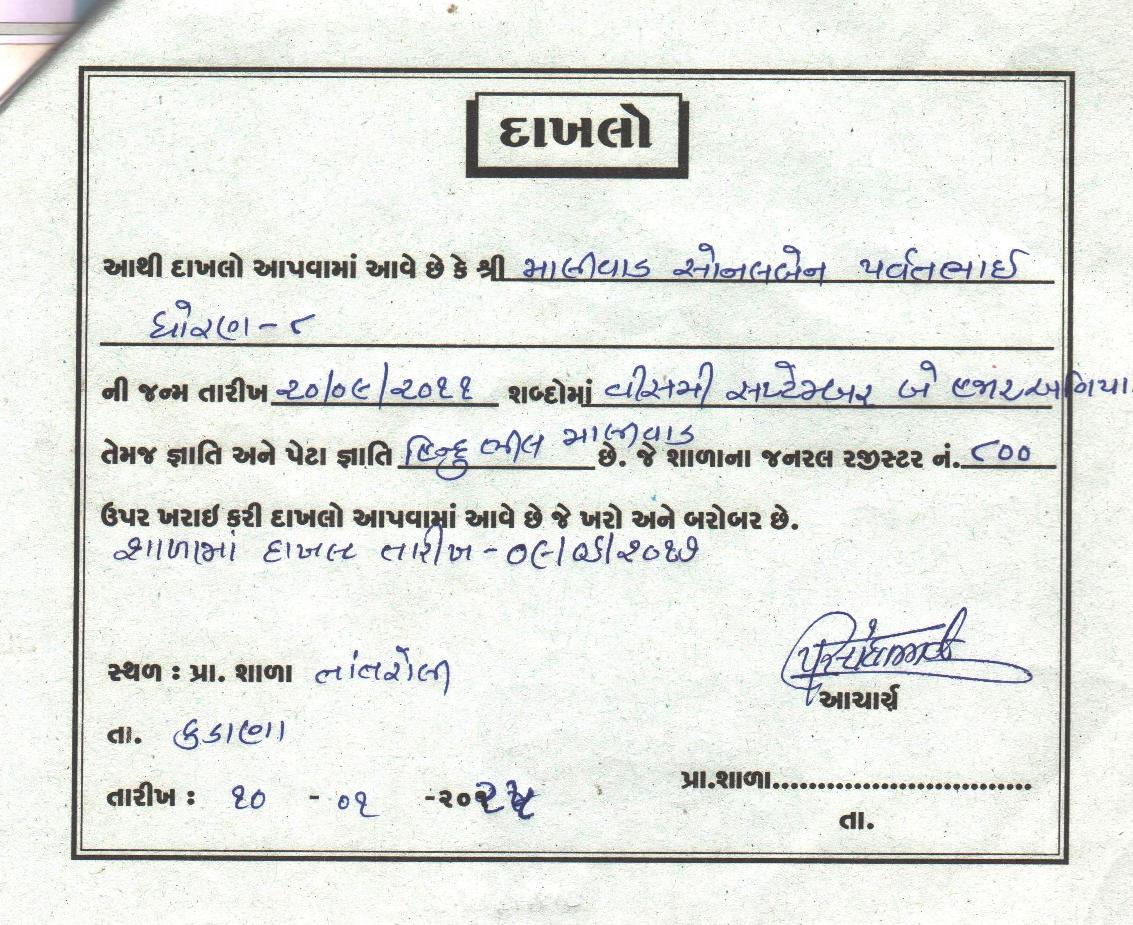 દાખલો
આથી દાખલો આપવામાં આવે છે કે શ્રી માલીવાડ સોનલબેન પર્વતભાઈ
ધોરણ - ૮
ની જન્મ તારીખ ૨૦/૦૯/૨૦૧૧ શબ્દોમાં વીસમી સપ્ટેમ્બર બે હજાર અગિયા
તેમજ જ્ઞાતિ અને પેટા જ્ઞાતિ હિન્દુ ભીલ માલીવાડ છે. જે શાળાના જનરલ રજીસ્ટર નં. ૮૦૦
ઉપર ખરાઇ કરી દાખલો આપવામાં આવે છે જે ખરો અને બરોબર છે.
શાળામાં દાખલ તારીખ - ૦૯/૦૬/૨૦૧૭
સ્થળ : પ્રા. શાળા તાંતરોલી
આચાર્ય
તા. કડાણા
પ્રા.શાળા..............................
તારીખ : ૧૦ - ૦૧ -૨૦૨૫
તા.